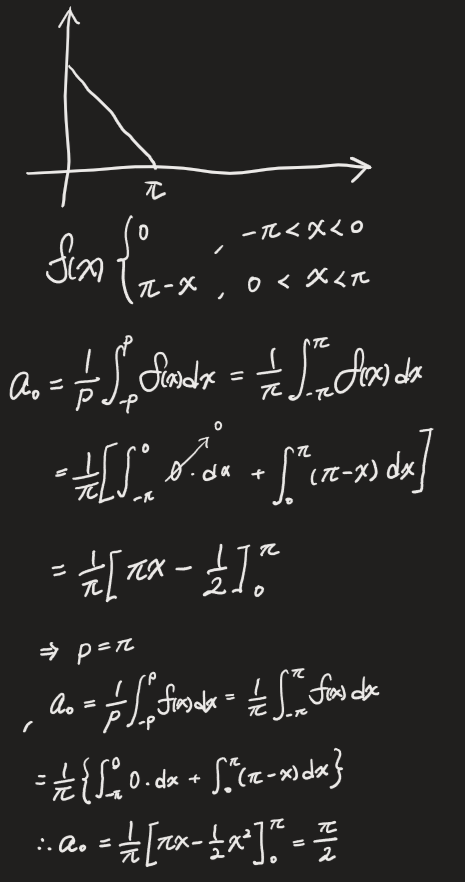 π
f(x) { 0 , -π < x < 0
π-x , 0 < x < π
a₀ = 1/p ∫_{-p}^{p} f(x)dx = 1/π ∫_{-π}^{π} f(x) dx
= 1/π [ ∫_{-π}^{0} 0 · dx + ∫_{0}^{π} (π-x) dx ]
0
= 1/π [ πx - 1/2 ]_{0}^{π}
⇒ p = π
, a₀ = 1/p ∫_{-p}^{p} f(x)dx = 1/π ∫_{-π}^{π} f(x) dx
= 1/π { ∫_{-π}^{0} 0 · dx + ∫_{0}^{π} (π-x) dx }
∴ a₀ = 1/π [ πx - 1/2 x² ]_{0}^{π} = π/2